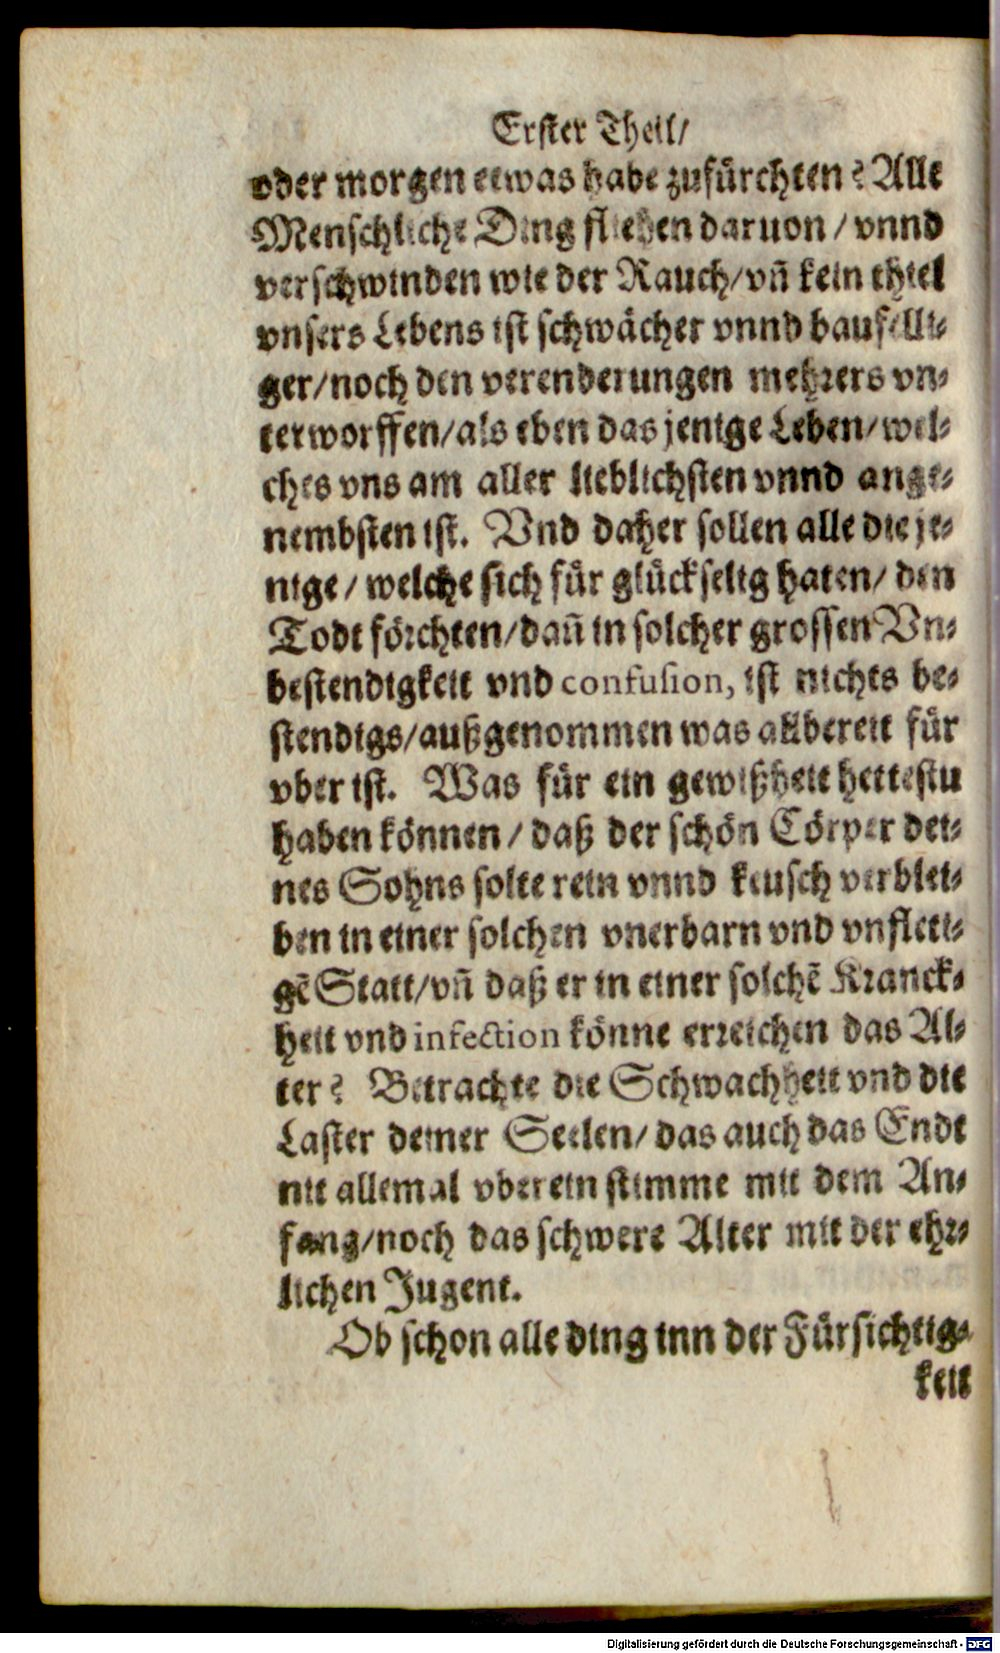 Erster Theil/
oder morgen etwas habe zufürchten? Alle
Menschliche Ding fliehen daruon/ vnnd
verschwinden wie der Rauch/ vñ kein theil
vnsers Lebens ist schwächer vnnd baufelli⸗
ger/ noch den verenderungen mehrers vn⸗
terworffen/ als eben das jenige Leben/ wel⸗
ches vns am aller lieblichsten vnnd ange⸗
nembsten ist. Vnd daher sollen alle die je⸗
nige/ welche sich für glückselig haten/ den
Todt förchten/ dañ in solcher grossen Vn⸗
bestendigkeit vnd confusion, ist nichts be⸗
stendigs/ außgenommen was allbereit für
vber ist. Was für ein gewißheit hettestu
haben können/ daß der schön Cörper dei⸗
nes Sohns solte rein vnnd keusch verblei⸗
ben in einer solchen vnerbarn vnd vnfleti⸗
gẽ Statt/ vñ daß er in einer solchẽ Kranck⸗
heit vnd infection könne erreichen das Al⸗
ter? Betrachte die Schwachheit vnd die
Laster deiner Seelen/ das auch das Ende
nit allemal vberein stimme mit dem An⸗
fang/ noch das schwere Alter mit der ehr⸗
lichen Jugent.
Ob schon alle ding inn der Fürsichtig⸗
keit
Digitalisierung gefördert durch die Deutsche Forschungsgemeinschaft - DFG